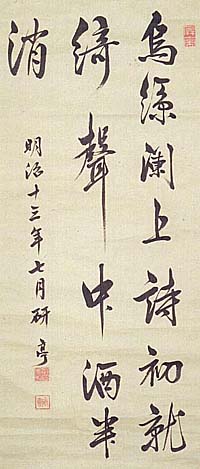 烏絲瀾上詩初就
綺聲中酒半
消
明治十三年七月研亭